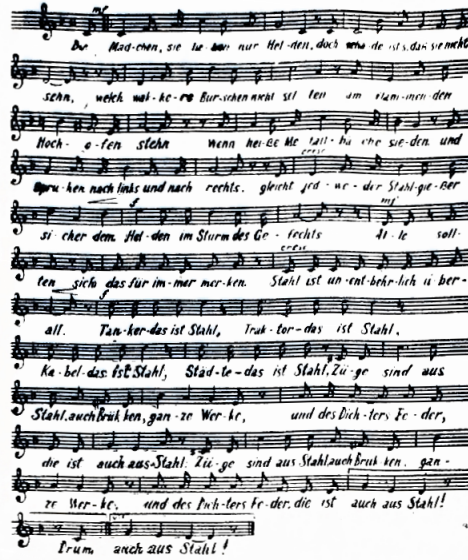 mf
Die Mäd-chen, sie lie-ben nur Hel-den, doch scha-de ist's, daß sie nicht
sehn, welch wak-ke-re Bur-schen nicht sel-ten am flam-men-den
Hoch-o-fen stehn Wenn hei-ße Me-tall-bä-che sie-den und
cresc
Spru-hen nach links und nach rechts, gleicht jed-we-der Stahl-gie-ßer
f mf
si-cher dem Hel-den im Sturm des Ge-fechts Al-le soll-
cresc
ten sich das für im-mer mer-ken. Stahl ist un-ent-behr-lich ü ber-
f
all. Tan-ker-das ist Stahl, Trak-tor-das ist Stahl,
Ka-bel-das ist Stahl, Städ-te-das ist Stahl, Zü-ge sind aus
Stahl, auch Brük ken, gan-ze Wer-ke, und des Dich-ters Fe-der,
die ist auch aus Stahl: Zü-ge sind aus Stahl, auch Brük ken, gan-
ze Wer-ke, und des Dich-ters Fe-der, die ist auch aus Stahl!
Drum, auch aus Stahl!